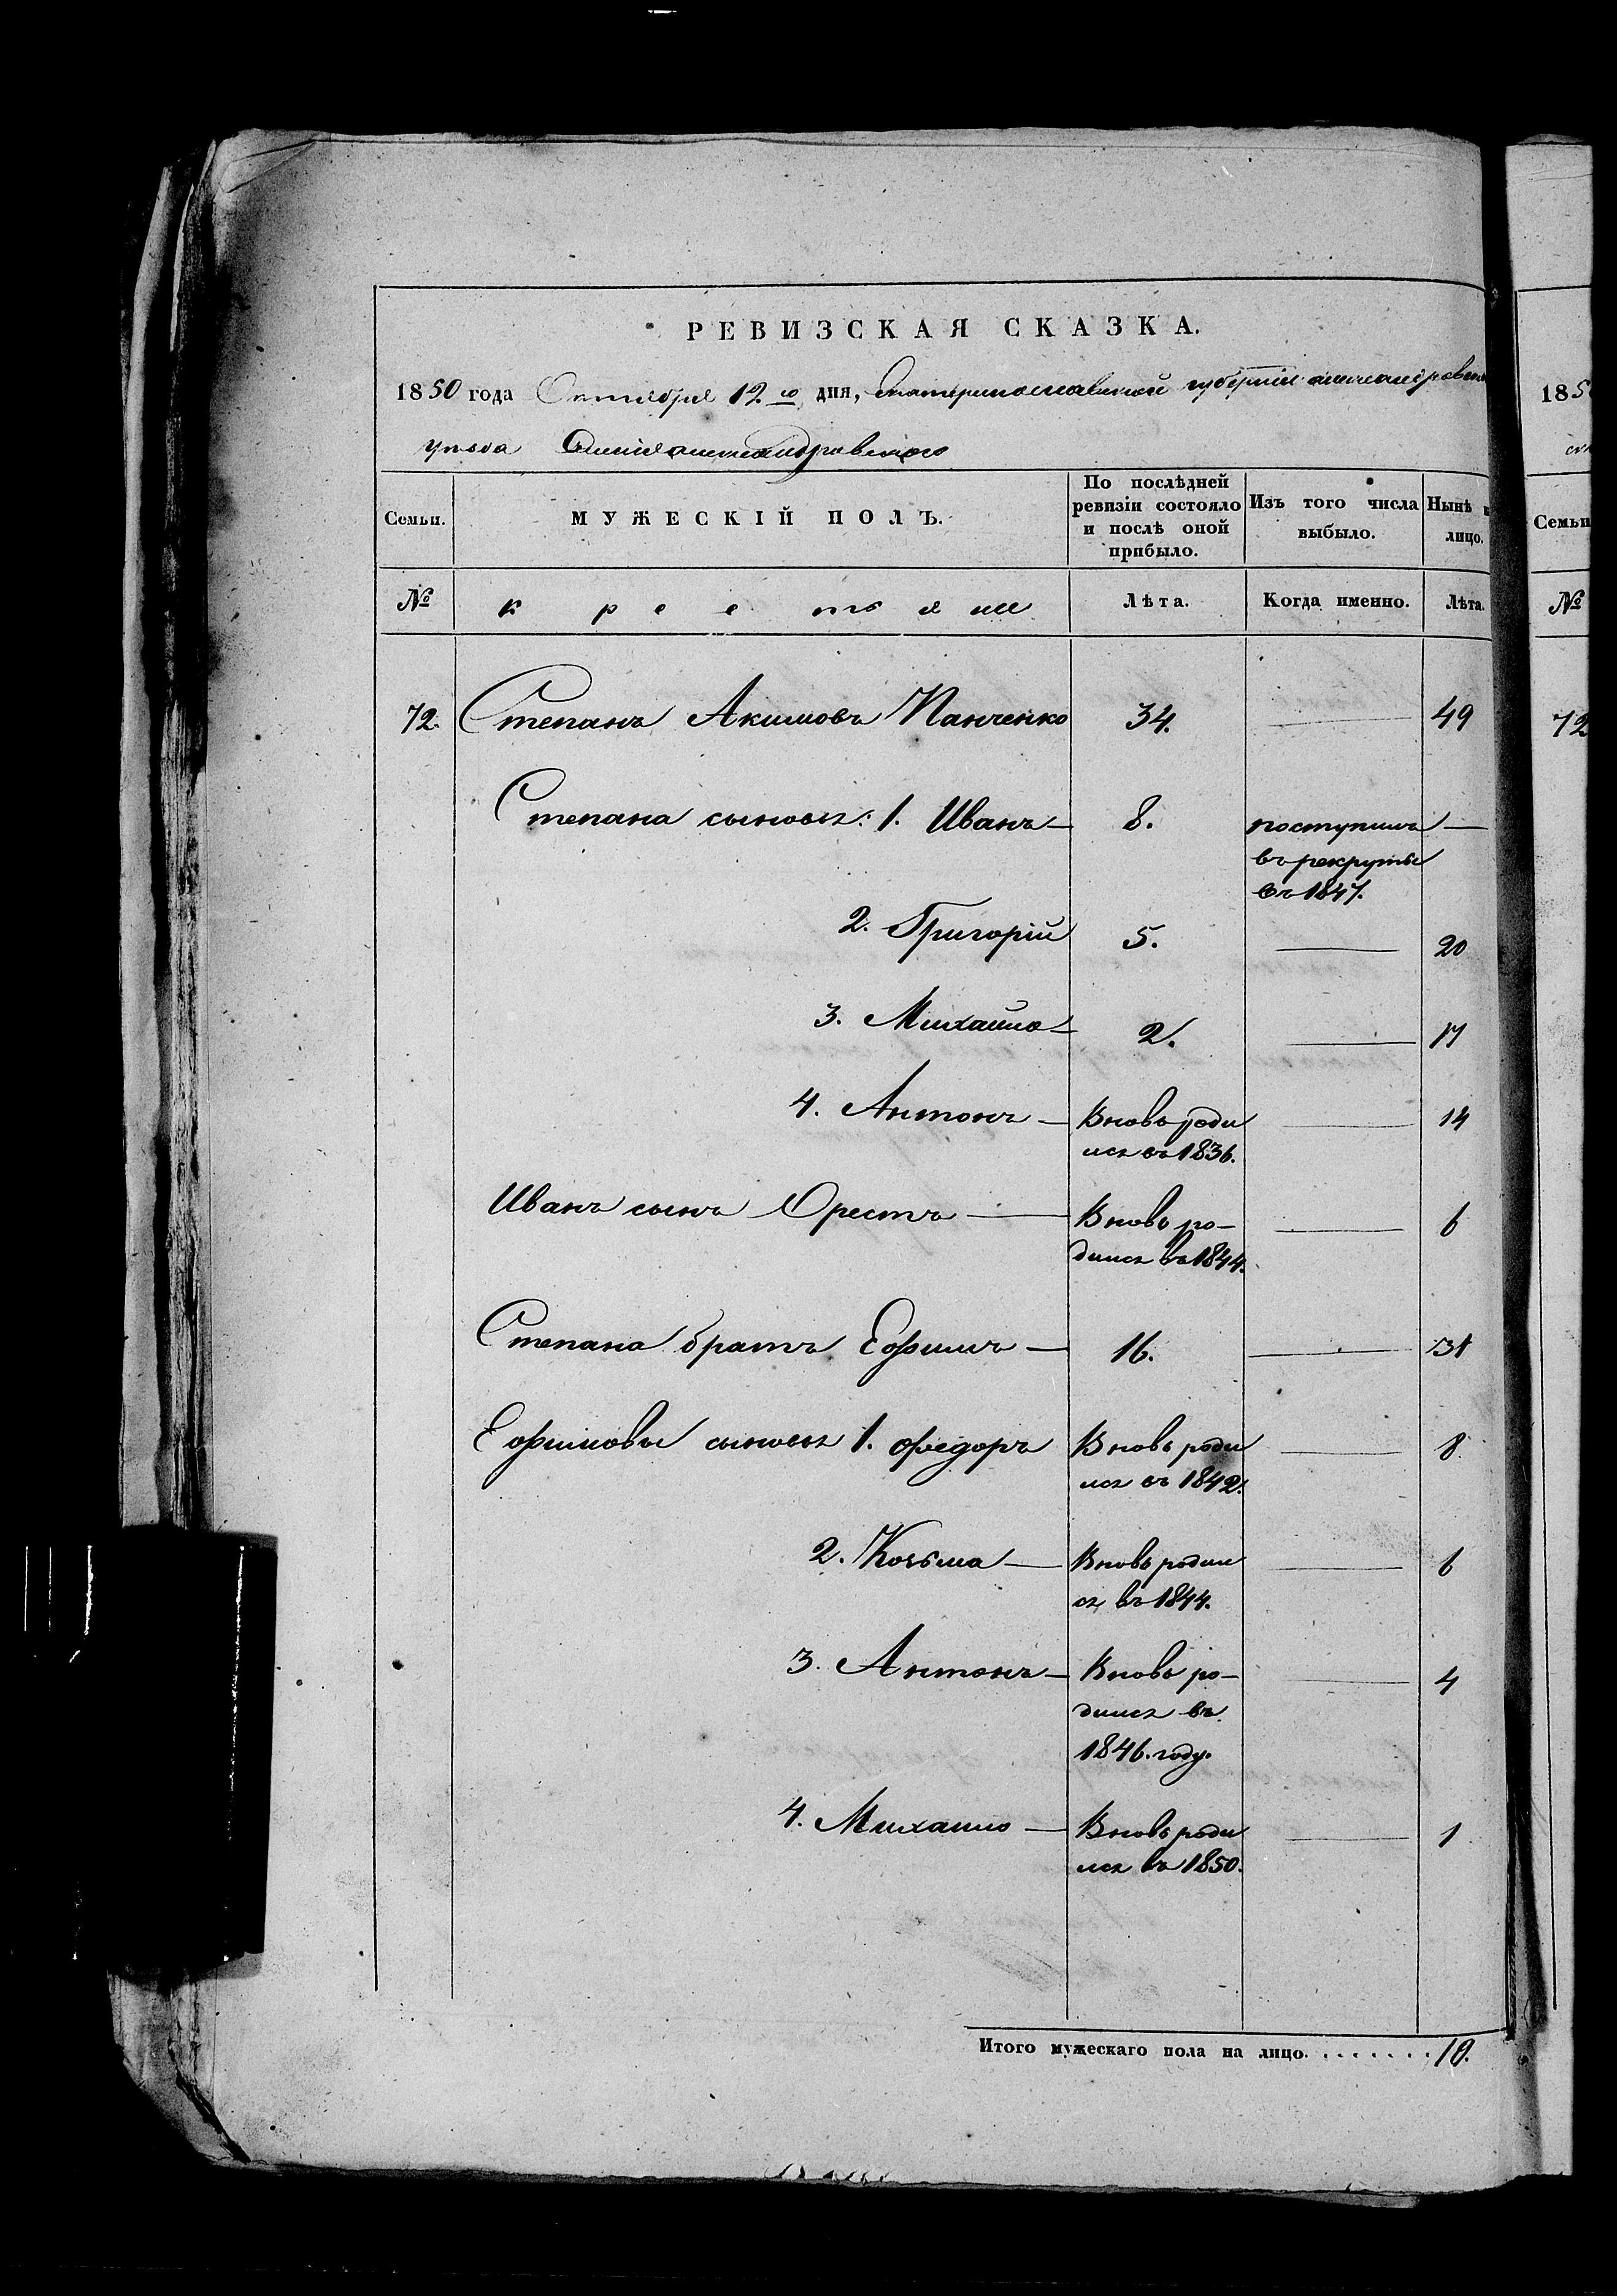 РЕВИЗСКАЯ СКАЗКА.
1850 года Октября 12го дня, Екатеринославской губернии александровска
уезда
185
Семьи.
МУЖЕСКІЙ ПОЛЪ.
По послѣдней ревизіи состояло и послѣ оной прибыло.
Изъ того числа выбыло.
Нынѣ
лицо.
Семьи
№ крестьяне Лѣта. Когда именно. Лѣта. №
72. Степанъ Акимовъ Панченко 34. — 49 72
Степана сыновья: 1. Иванъ — 8. поступилъ —
въ рекруты
въ 1847.
2. Григорій 5. — 20
3. Михайло — 2. — 17
4. Антонъ — Вновь роди — 14
лся въ 1836.
Иванъ сынъ Орестъ — Вновь ро- — 6
дился въ 1844.
Степана братъ Ефимъ — 16. — 31
Ефимовы сыновья 1. Федоръ Вновь роди — 8.
лся въ 1842.
2. Козьма — Вновь родил — 6
ся въ 1844.
3. Антонъ — Вновь ро- — 4
дился въ
1846. году.
4. Михайло — Вновь роди — 1
лся въ 1850.
Итого мужескаго пола на лицо. . . . . . . . 10.